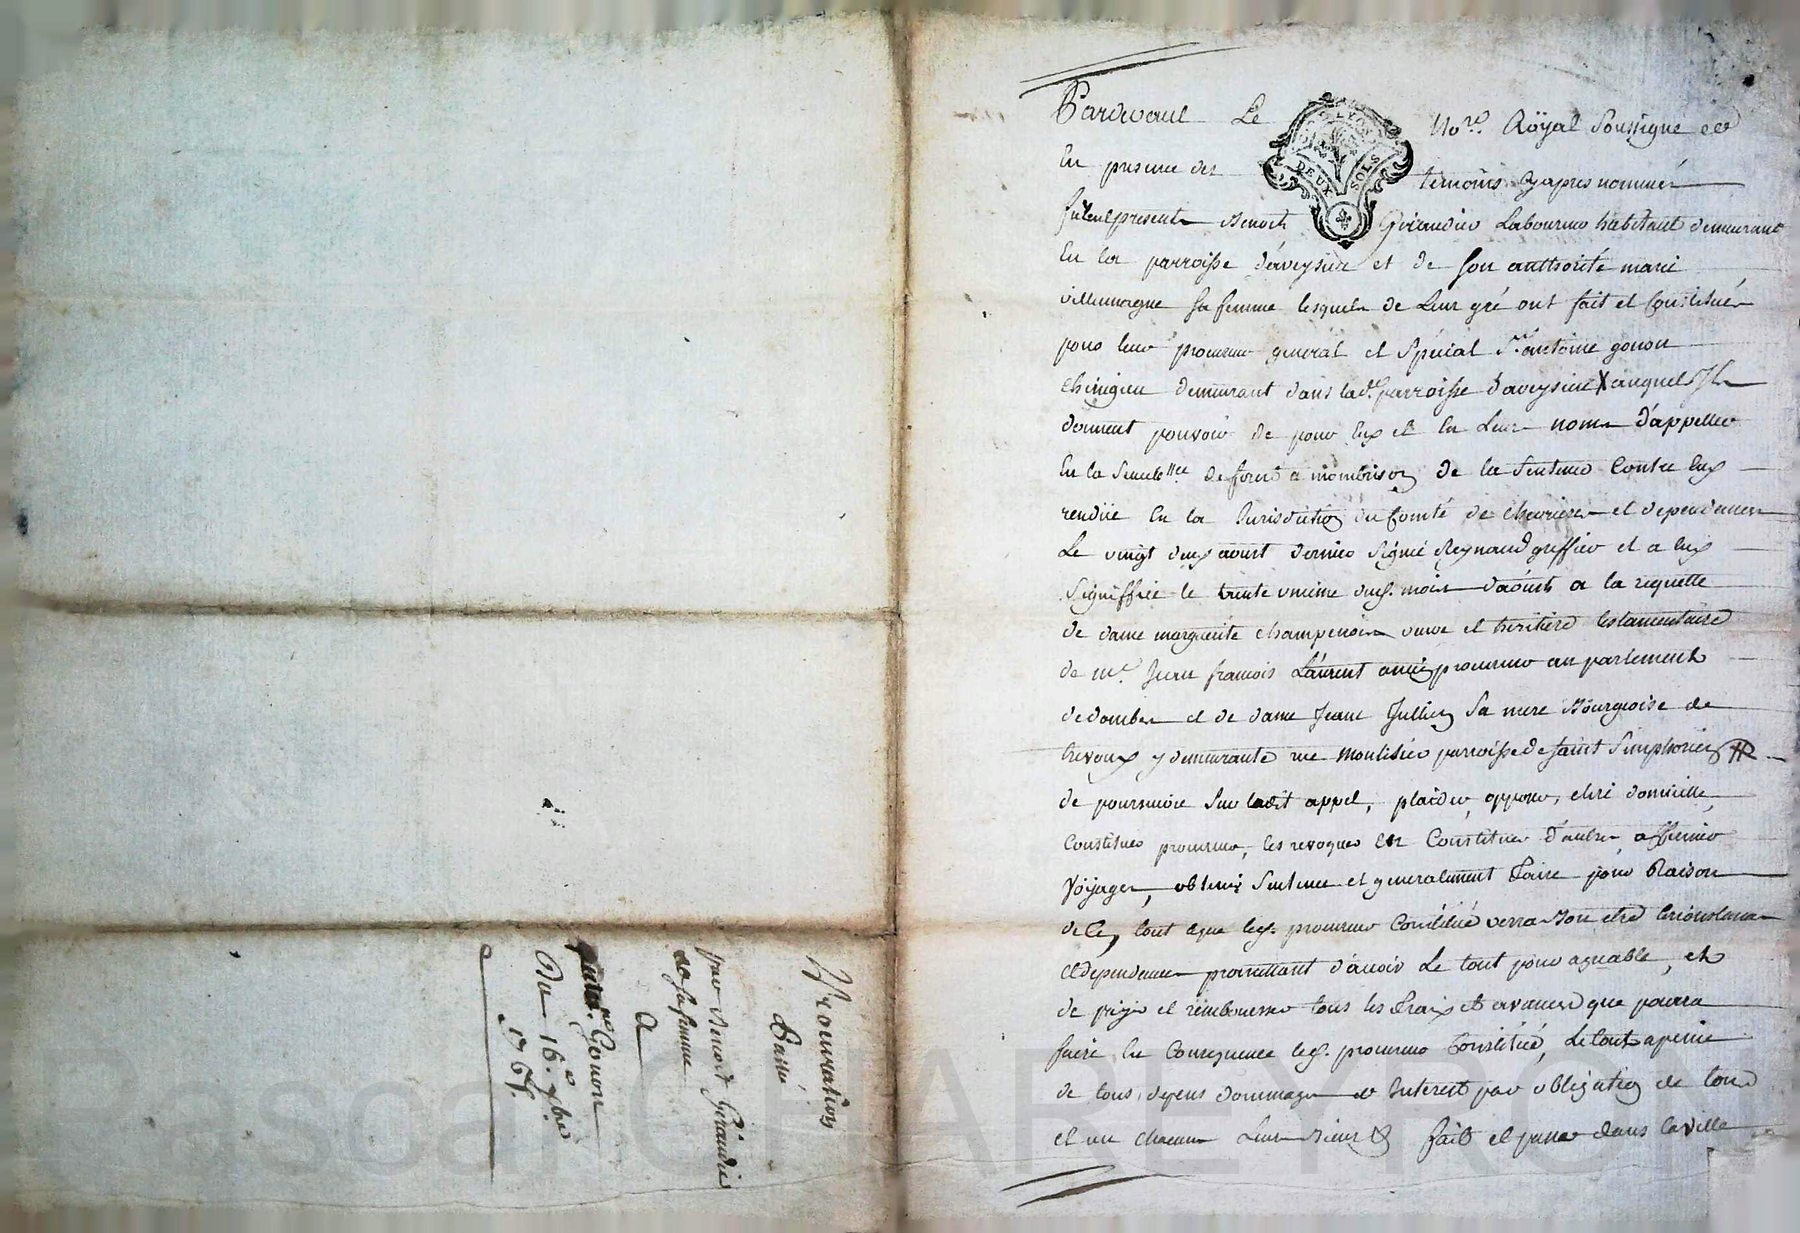 Pardevant Le No.re Röyal soussigné et
En presence des temoins cyapres nommés
furent presents Benoit Giraudier Laboureur habitant demeurant
En la parroisse d'aveysieu et de son authorité marie
villemagne sa femme lesquels de Leur gré ont fait et Constitués
pour leur procureur general et spécial S.r antoine gonon
chirugien demeurant dans lad.e parroisse d'aveysieu X auquel Ils
donnent pouvoir de pour Eux et En Leurs noms d'appeller
En la senech.ée de forest a monbrison de la sentence Contre Eux
rendüe En la Jurisdiction du Comté de chevrieres et dependances
Le vingt deux aoust dernier signé Reynaud greffier et a Eux
signiffiée le trente unieme dud. mois d'aoust a la requette
de dame marguerite champenois veuve et heritiere testamentaire
de m.e Jean francois Laurent ancien procureur au parlement
de dombes et de dame Jeanne Jullien sa mere Bourgeoise de
trevoux y demeurante rue parroisse de saint simphorien
de poursuivre sur ledit appel, plaider, opposer, elire domicille,
Constituer procureurs, les revoquer En Constituer d'autres, affirmer
Voyages, obtenir sentence et generalement Faire pour Raison
de Ce, tout ce que led. procureur Constitué verra Bon etre Circonstances
et dependances promettant d'avoir Le tout pour agreable, et
de payer et rembourser tous les Fraix et avances que pourra
faire En Consequence led. procureur Constitué, Le tout a peine
de tous depens dommages et Interest par obligation de tous
et un chacuns Leurs Biens & fait et passé dans la ville
DEUX SOLS
Procuration
Passé
par Benoit Giraudier
et sa femme
A
Gonon
Du 16.e 7bre
CHAREYRON